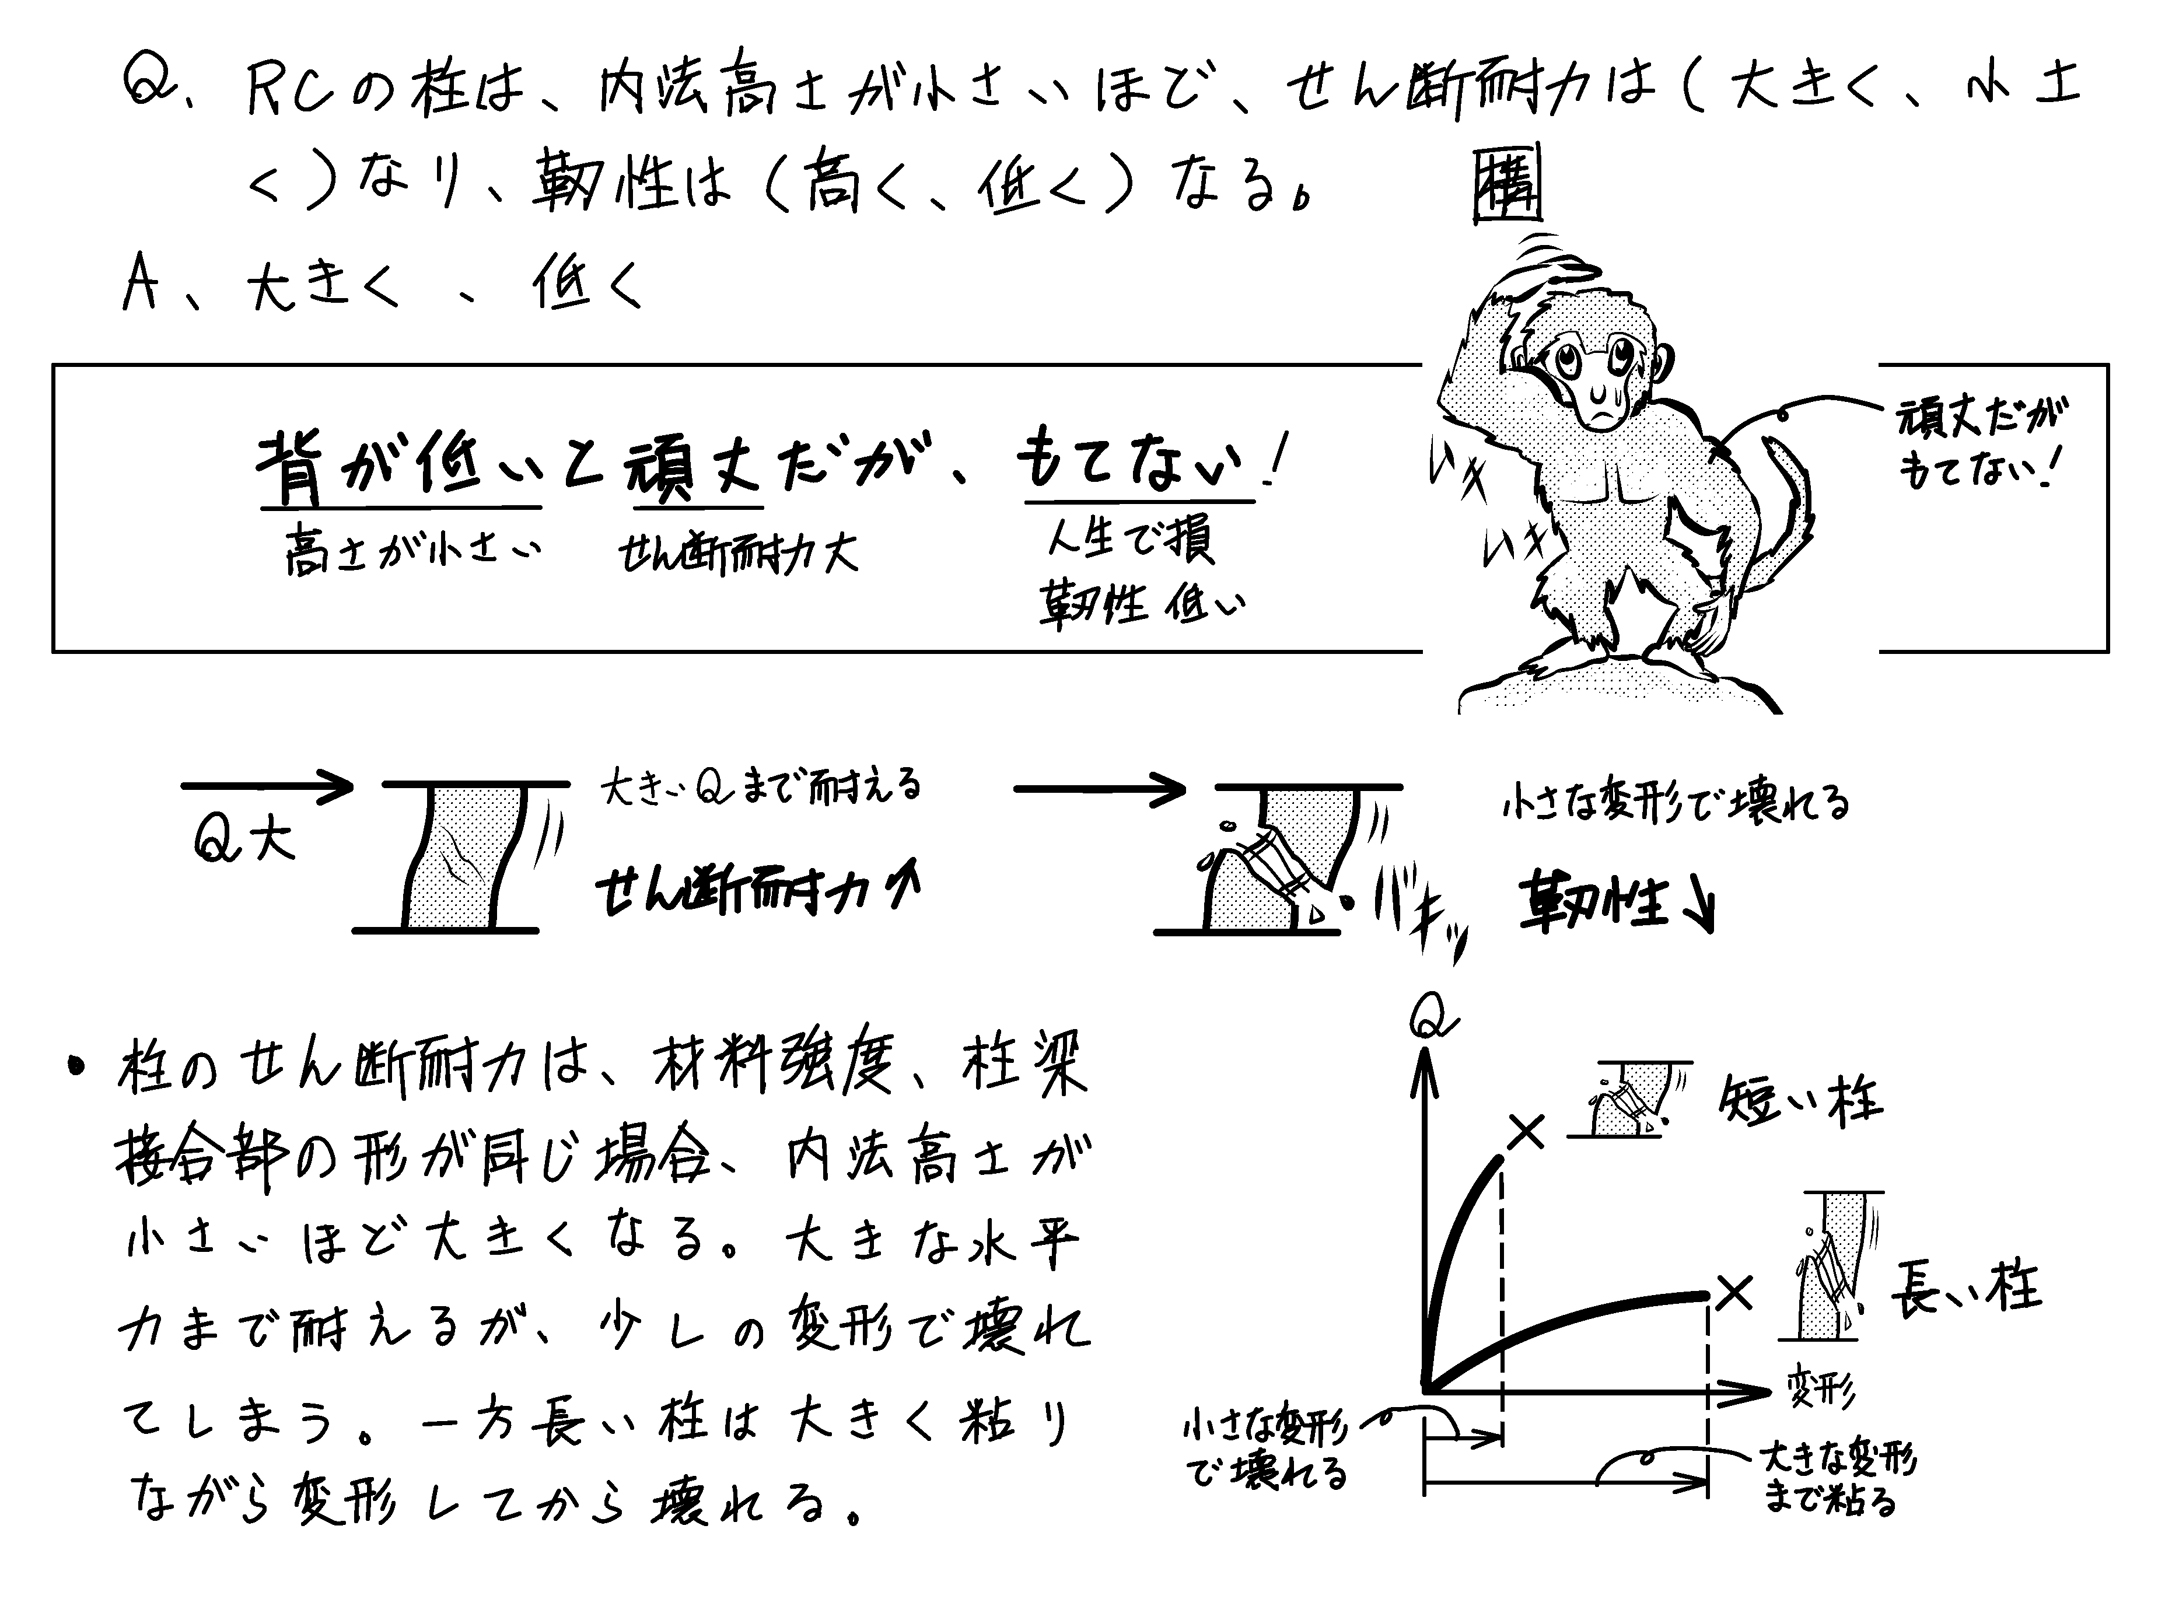 Q、RCの柱は、内法高さが小さいほど、せん断耐力は(大きく、小さ
く)なり、靭性は(高く、低く)なる。
構
A、大きく、低く
背が低いと頑丈だが、もてない!
高さが小さい
せん断耐力大
人生で損
靭性 低い
いキ
いキ
頑丈だが
もてない!
Q大
大きいQまで耐える
せん断耐力↗
バキッ
小さな変形で壊れる
靭性↓
・柱のせん断耐力は、材料強度、柱梁
接合部の形が同じ場合、内法高さが
小さいほど大きくなる。大きな水平
力まで耐えるが、少しの変形で壊れ
てしまう。一方長い柱は大きく粘り
ながら変形してから壊れる。
Q
短い柱
長い柱
変形
小さな変形
で壊れる
大きな変形
まで粘る